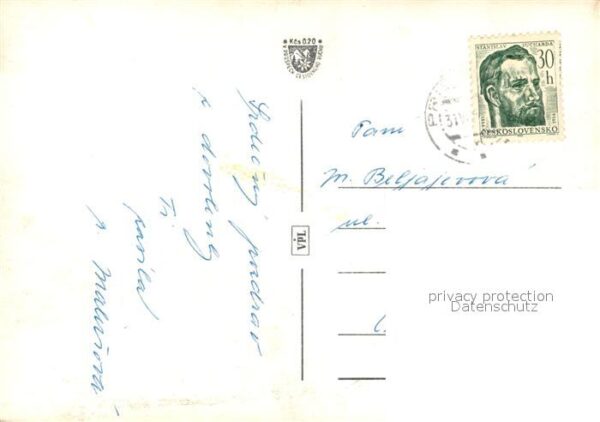 Kčs 0,20
STANISLAV SUCHARDA
30
h
ČESKOSLOVENSKO
Pani
M. Beljajevová
ul.
Srdečný pozdrav
z dovolenky
Ti
posiela
p. Matušová
privacy protection
Datenschutz